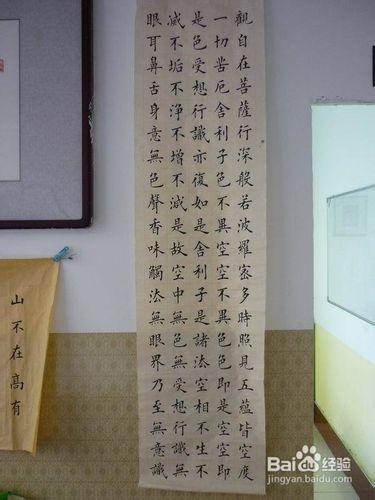 觀自在菩薩行深般若波羅密多時照見五蘊皆空度
一切苦厄舍利子色不異空空不異色色即是空空即
是色受想行識亦復如是舍利子是諸法空相不生不
滅不垢不淨不增不減是故空中無色無受想行識無
眼耳鼻舌身意無色聲香味觸法無眼界乃至無意識
山不在高有
Bai百度经验
jingyan.baidu.com